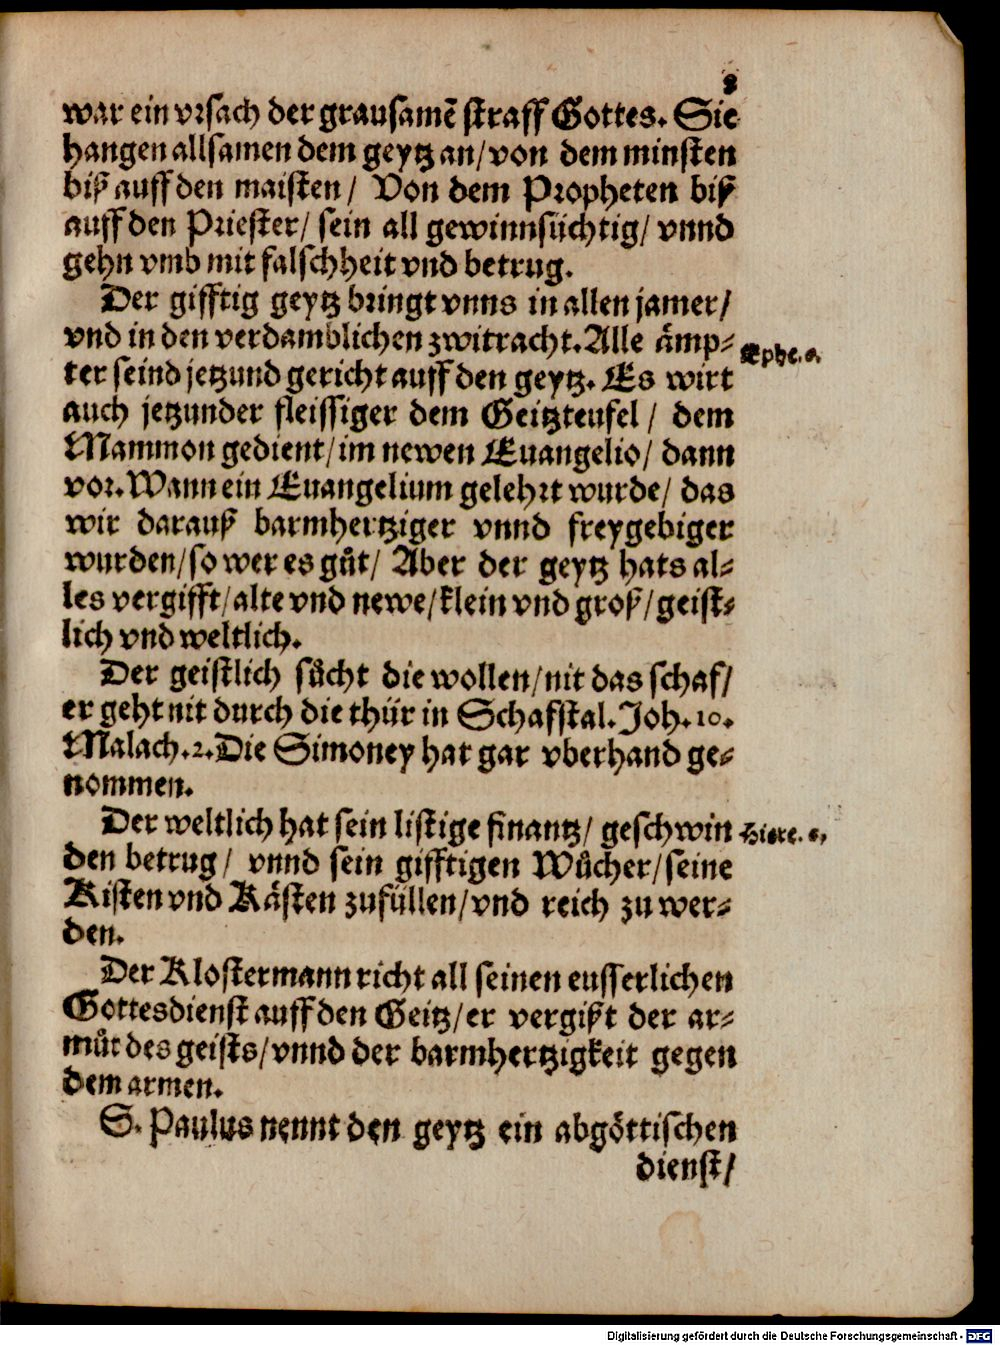 8
war ein vrsach der grausamē straff Gottes. Sie
hangen allsamen dem geytz an/ von dem minsten
biß auff den maisten/ Von dem Propheten biß
auff den Priester/ sein all gewinnsüchtig/ vnnd
gehn vmb mit falschheit vnd betrug.
Der gifftig geytz bringt vnns in allen jamer/
vnd in den verdamblichen zwitracht. Alle ämp-
Ephe. 5.
ter seind jetzund gericht auff den geytz. Es wirt
auch jetzunder fleissiger dem Geitzteufel/ dem
Mammon gedient/ im newen Euangelio/ dann
vor. Wann ein Euangelium gelehrt wurde/ das
wir darauß barmhertziger vnnd freygebiger
wurden/ so wer es gůt/ Aber der geytz hats al-
les vergifft/ alte vnd newe/ klein vnd groß/ geist-
lich vnd weltlich.
Der geistlich sůcht die wollen/ nit das schaf/
er geht nit durch die thür in Schafstal. Joh. 10.
Malach. 2. Die Simoney hat gar vberhand ge-
nommen.
Der weltlich hat sein listige finantz/ geschwin
Hiere. 6,
den betrug/ vnnd sein gifftigen Wůcher/ seine
Kisten vnd Kästen zufüllen/ vnd reich zu wer-
den.
Der Klostermann richt all seinen eusserlichen
Gottesdienst auff den Geitz/ er vergißt der ar-
můt des geists/ vnnd der barmhertzigkeit gegen
dem armen.
S. Paulus nennt den geytz ein abgöttischen
dienst/
Digitalisierung gefördert durch die Deutsche Forschungsgemeinschaft - DFG